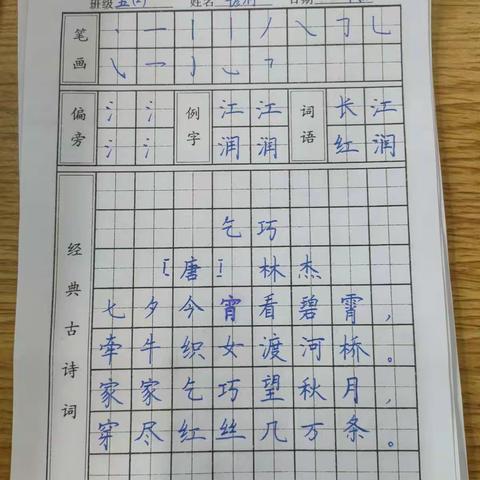 班级 五(2) 姓名 日期
笔画
偏旁 氵 氵 例字 江 江 词语 长 江
氵 氵 润 润 红 润
经典古诗词
乞巧
[唐] 林杰
七夕今宵看碧霄，
牵牛织女渡河桥。
家家乞巧望秋月，
穿尽红丝几万条。